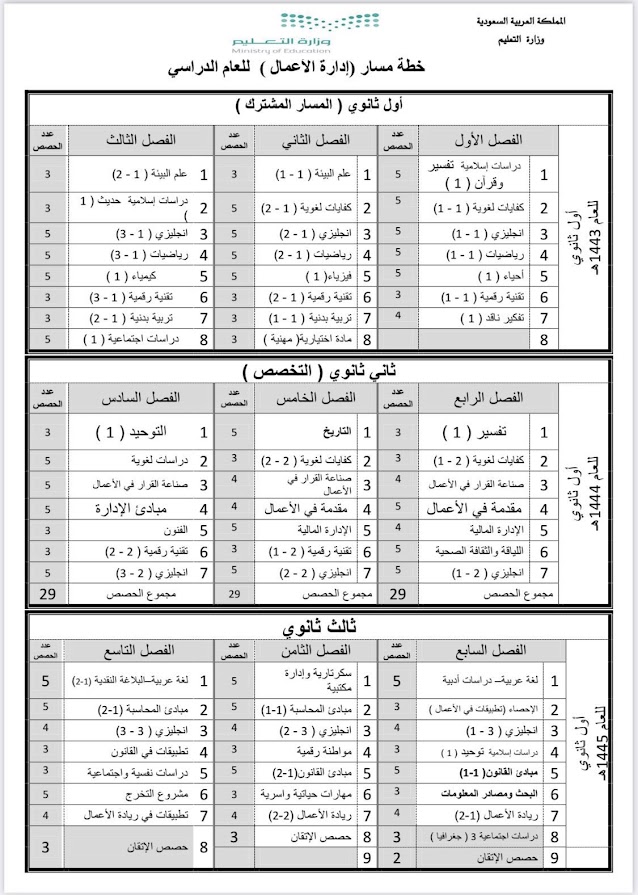 المملكة العربية السعودية
وزارة التعليم
وزارة التعليم
Ministry of Education
خطة مسار (إدارة الأعمال ) للعام الدراسي
أول ثانوي ( المسار المشترك )
الفصل الأول عدد الحصص الفصل الثاني عدد الحصص الفصل الثالث عدد الحصص
أول ثانوي للعام 1443هـ
1 دراسات إسلامية تفسير وقرآن ( 1 ) 5 1 علم البيئة ( 1 - 1) 3 1 علم البيئة ( 1 - 2) 3
2 كفايات لغوية ( 1 - 1) 5 2 كفايات لغوية ( 1 - 2) 5 2 دراسات إسلامية حديث ( 1 ) 3
3 انجليزي ( 1 - 1) 5 3 انجليزي ( 1 - 2) 5 3 انجليزي ( 1 - 3) 5
4 رياضيات ( 1 - 1) 5 4 رياضيات ( 1 - 2) 5 4 رياضيات ( 1 - 3) 5
5 أحياء ( 1 ) 5 5 فيزياء( 1 ) 5 5 كيمياء ( 1 ) 5
6 تقنية رقمية ( 1 - 1) 3 6 تقنية رقمية ( 1 - 2) 3 6 تقنية رقمية ( 1 - 3) 3
7 تفكير ناقد ( 1 ) 4 7 تربية بدنية ( 1 - 1) 3 7 تربية بدنية ( 1 - 2) 3
8 8 مادة اختيارية( مهنية ) 3 8 دراسات اجتماعية ( 1 ) 5
ثاني ثانوي ( التخصص )
الفصل الرابع عدد الحصص الفصل الخامس عدد الحصص الفصل السادس عدد الحصص
أول ثانوي للعام 1444هـ
1 تفسير ( 1 ) 3 1 التاريخ 5 1 التوحيد ( 1 ) 3
2 كفايات لغوية ( 2 - 1) 3 2 كفايات لغوية ( 2 - 2) 3 2 دراسات لغوية 5
3 صناعة القرار في الأعمال 4 3 صناعة القرار في الأعمال 4 3 صناعة القرار في الأعمال 5
4 مقدمة في الأعمال 5 4 مقدمة في الأعمال 4 4 مبادئ الإدارة 5
5 الإدارة المالية 4 5 الإدارة المالية 5 5 الفنون 3
6 اللياقة والثقافة الصحية 5 6 تقنية رقمية ( 2 - 1) 3 6 تقنية رقمية ( 2 - 2) 3
7 انجليزي ( 2 - 1) 5 7 انجليزي ( 2 - 2) 5 7 انجليزي ( 2 - 3) 5
مجموع الحصص 29 مجموع الحصص 29 مجموع الحصص 29
ثالث ثانوي
الفصل السابع عدد الحصص الفصل الثامن عدد الحصص الفصل التاسع عدد الحصص
أول ثانوي للعام 1445هـ
1 لغة عربية– دراسات أدبية 5 1 سكرتارية وإدارة مكتبية 5 1 لغة عربية–البلاغة النقدية (1-2) 5
2 الإحصاء (تطبيقات في الأعمال ) 3 2 مبادئ المحاسبة (1-1) 5 2 مبادئ المحاسبة (1-2) 5
3 انجليزي ( 3 - 1) 4 3 انجليزي ( 3 - 2) 4 3 انجليزي ( 3 - 3) 4
4 دراسات إسلامية توحيد ( 1 ) 3 4 مواطنة رقمية 3 4 تطبيقات في القانون 3
5 مبادئ القانون( 1-1) 5 5 مبادئ القانون(1-2) 5 5 دراسات نفسية واجتماعية 3
6 البحث ومصادر المعلومات 3 6 مهارات حياتية واسرية 3 6 مشروع التخرج 5
7 ريادة الأعمال (2-1) 4 7 ريادة الأعمال (2-2) 4 7 تطبيقات في ريادة الأعمال 4
8 دراسات اجتماعية 3 ( جغرافيا ) 3 8 حصص الإتقان 3 8 حصص الإتقان 3
9 حصص الإتقان 2 9